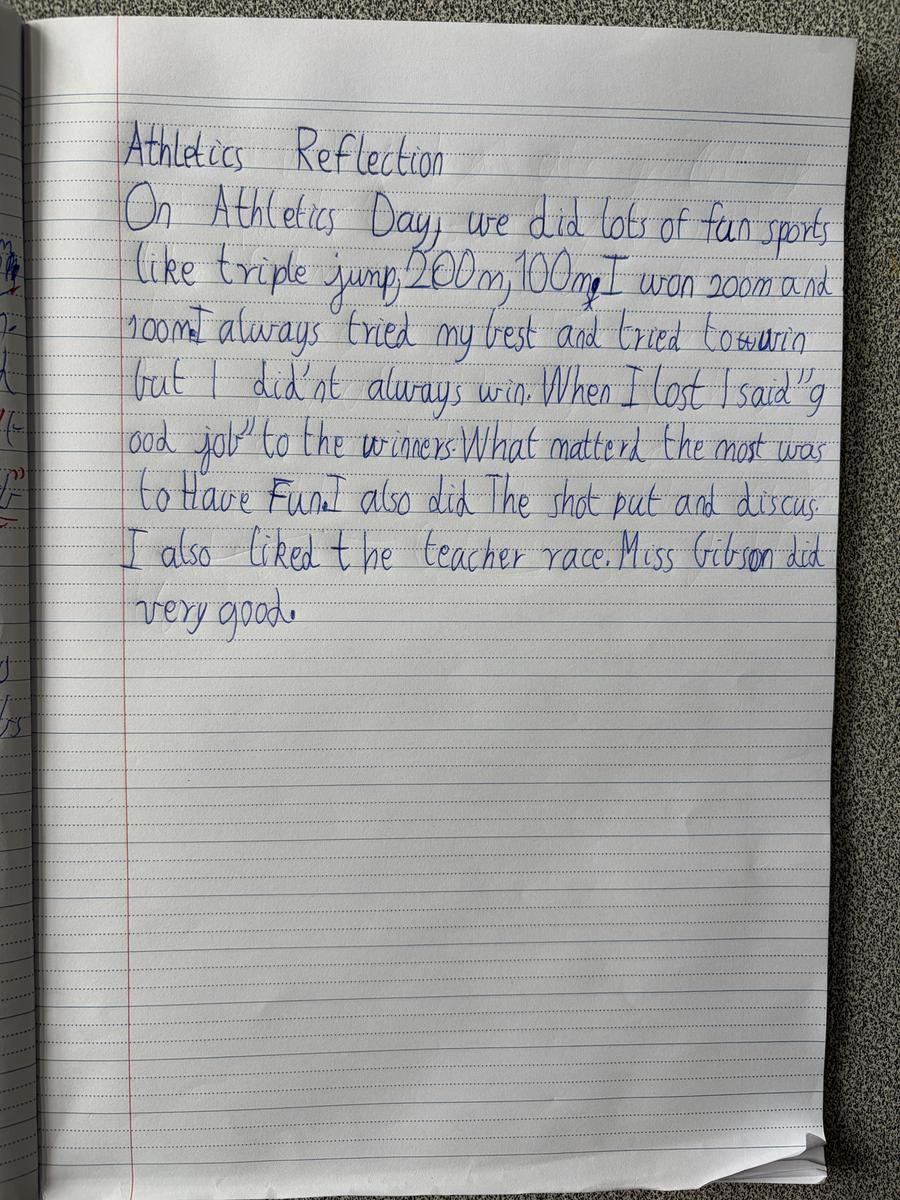 Athletics Reflection
On Athletics Day, we did lots of fun sports
like triple jump, 200m, 100m. I won 200m and
100m. I always tried my best and tried to win
but I did'nt always win. When I lost I said "g
ood job" to the winners. What matterd the most was
to Have Fun. I also did The shot put and discus.
I also liked the teacher race. Miss Gibson did
very good.